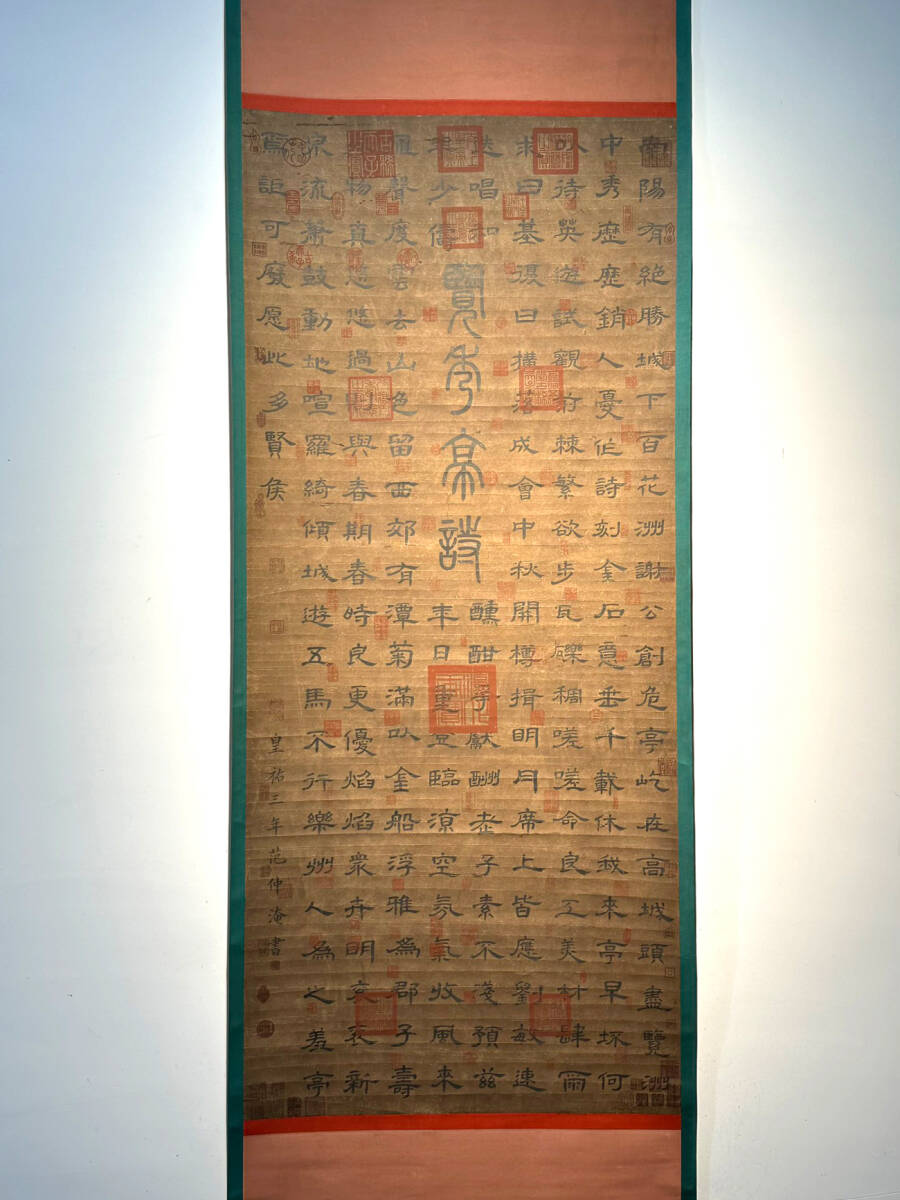 南陽有絶勝城下百花洲謝公創危亭屹在高城頭盡覽洲
中秀歷歷銷人憂作詩刻金石意垂千載休我來亭早坏何
以待英遊試觀荊棘繁欲步瓦礫稠嗟嗟命良工美材肆爾
求曰基復曰構落成會中秋開樽揖明月席上皆應劉敏速
迭唱和
覽秀亭詩
醺酣爭獻酬老子素不淺預茲
年少儔
年日重登臨涼空氛氣收風來
雁聲度雲去山色留西郊有潭菊滿以金船浮雅為郡子壽
外物真悠悠過則與春期春時良更優焰焰衆卉明衮衮新
泉流簫鼓動地喧羅綺傾城遊五馬不行樂州人為之羞亭
焉詎可廢愿此多賢侯
皇祐三年范仲淹書